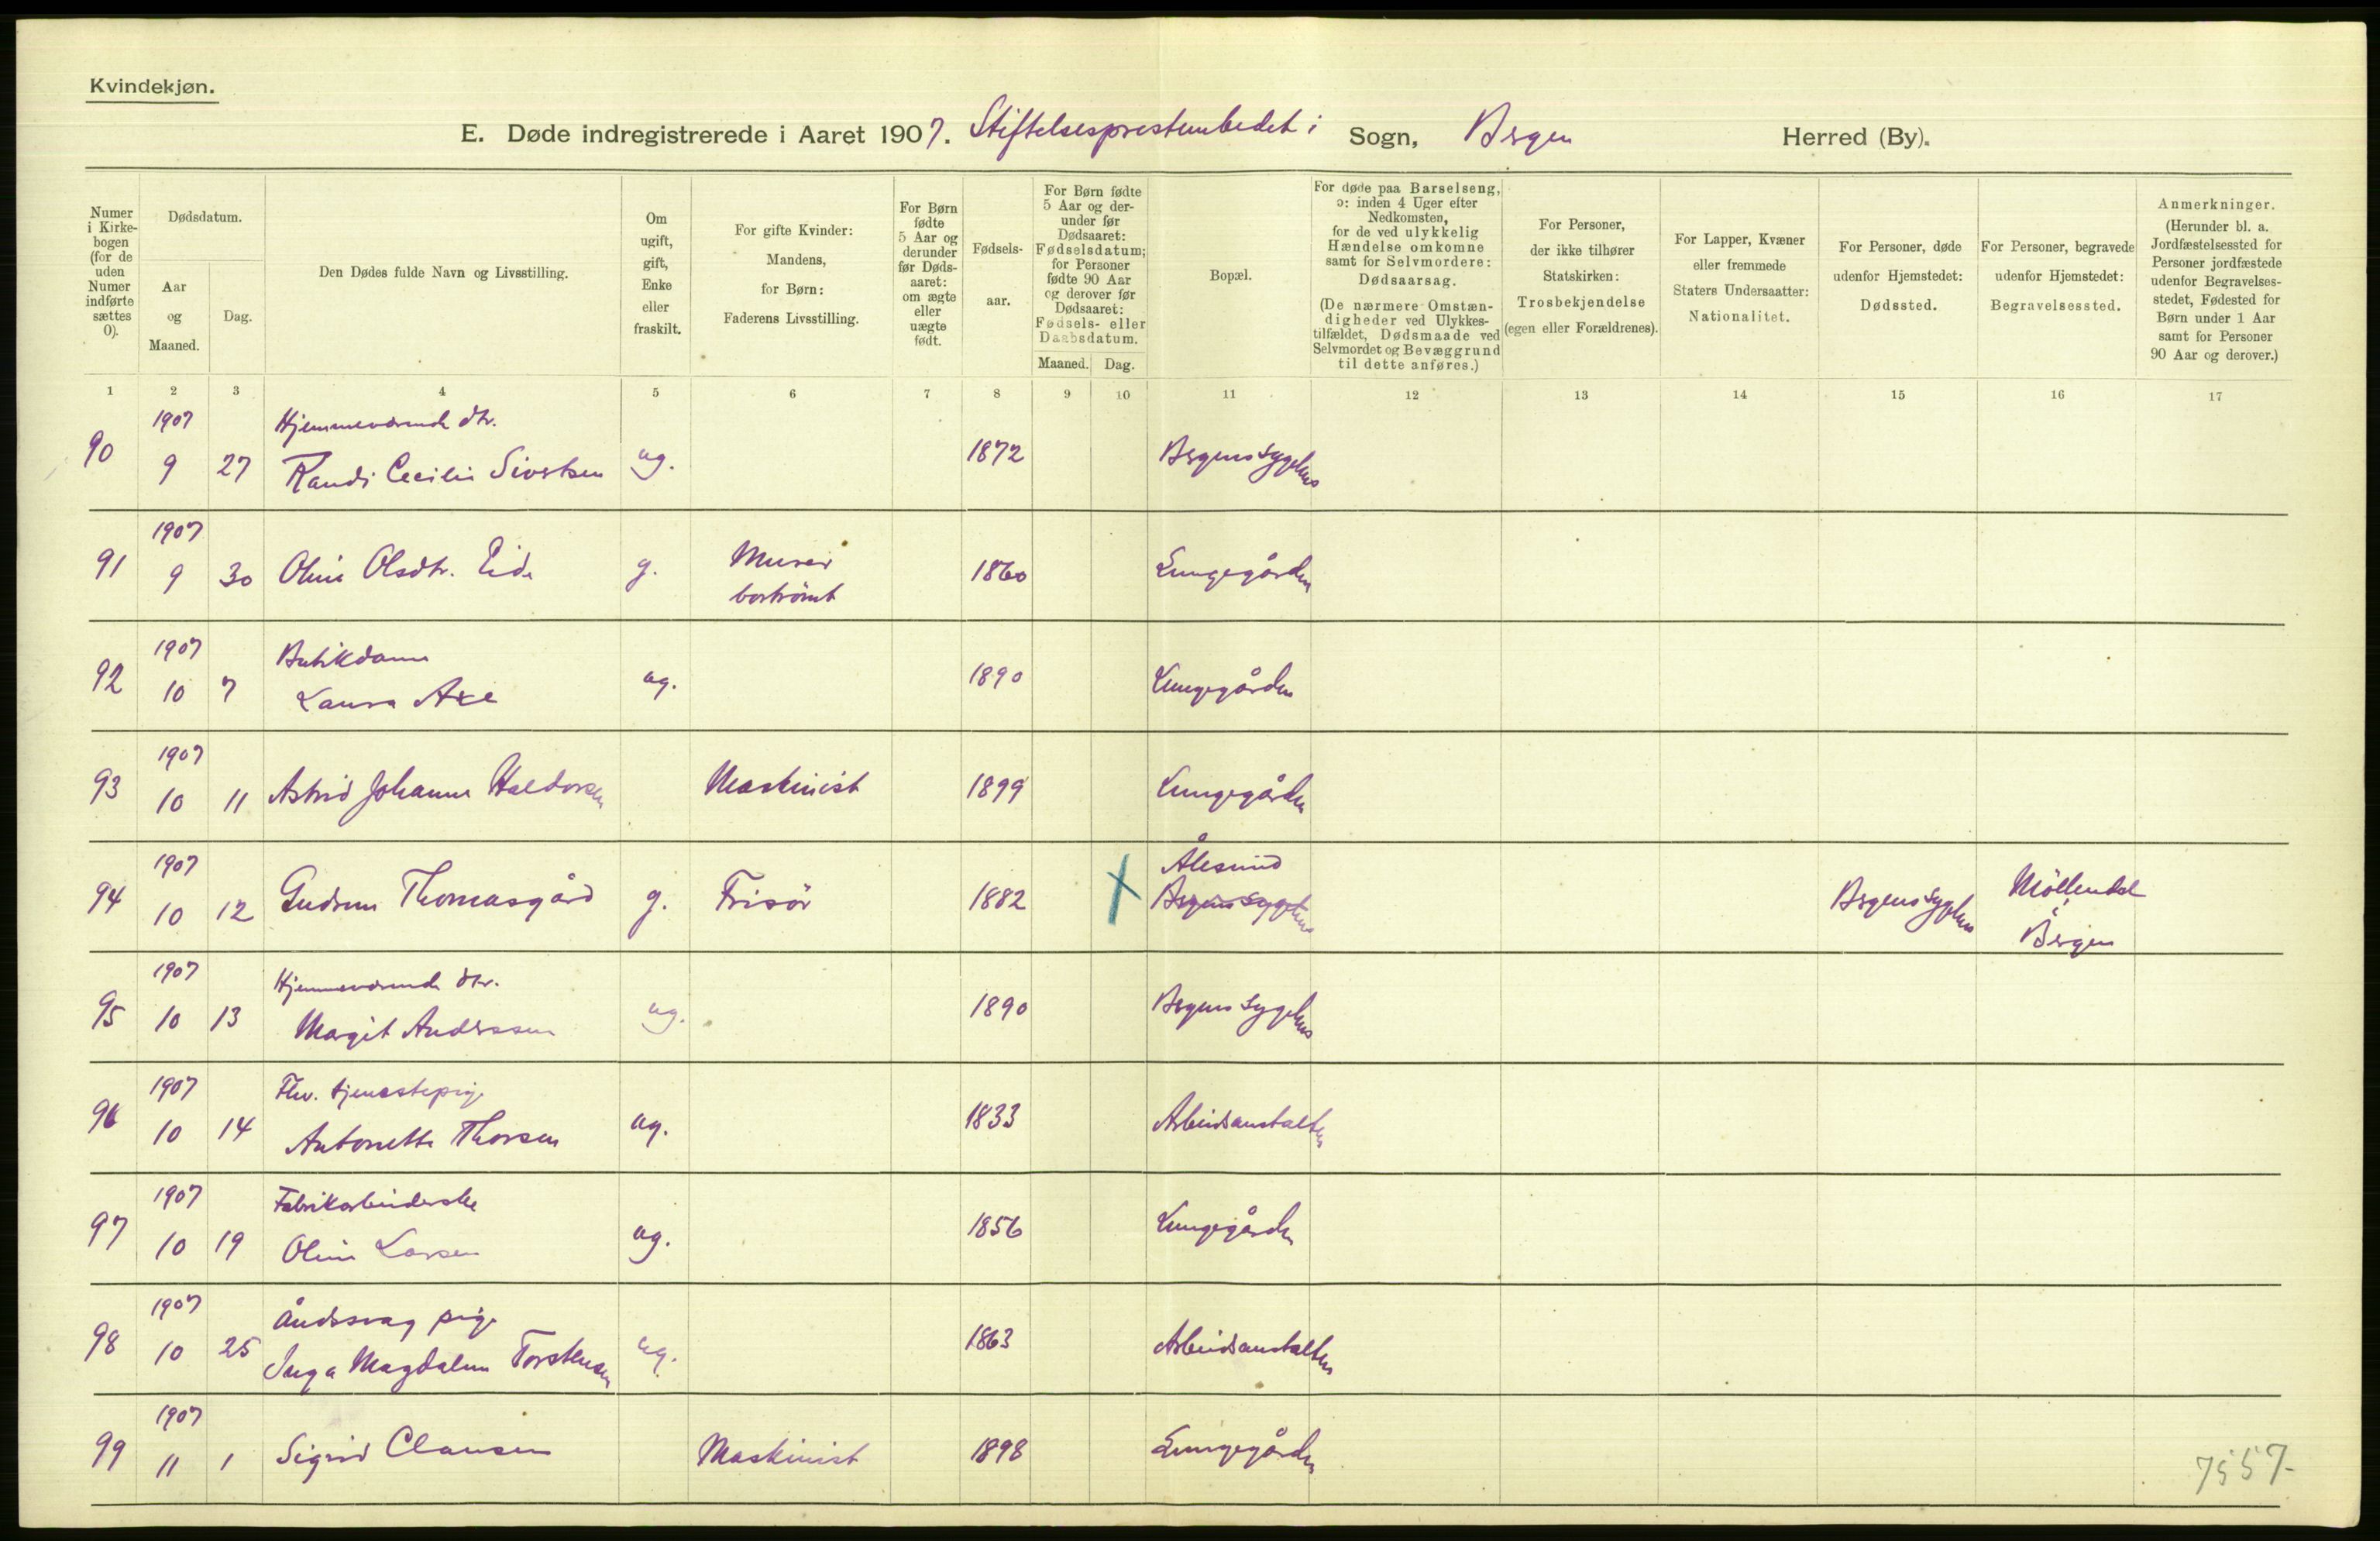 Kvindekjøn.
E. Døde indregistrerede i Aaret 1907. Stiftelsesprestembedet i Sogn, Bergen Herred (By).
Numer i Kirkebogen (for de uden Numer indførte sættes 0).
Dødsdatum.
Aar og Maaned.
Dag.
Den Dødes fulde Navn og Livsstilling.
Om ugift, gift, Enke eller fraskilt.
For gifte Kvinder: Mandens, for Børn: Faderens Livsstilling.
For Børn fødte 5 Aar og derunder før Dødsaaret: om ægte eller uægte født.
Fødselsaar.
For Børn fødte 5 Aar og derunder før Dødsaaret: Fødselsdatum; for Personer fødte 90 Aar og derover før Dødsaaret: Fødsels- eller Daabsdatum.
Maaned. Dag.
Bopæl.
For døde paa Barselseng, ɔ: inden 4 Uger efter Nedkomsten, for de ved ulykkelig Hændelse omkomne samt for Selvmordere: Dødsaarsag.
(De nærmere Omstændigheder ved Ulykkestilfældet, Dødsmaade ved Selvmordet og Bevæggrund til dette anføres.)
For Personer, der ikke tilhører Statskirken: Trosbekjendelse (egen eller Forældrenes).
For Lapper, Kvæner eller fremmede Staters Undersaatter: Nationalitet.
For Personer, døde udenfor Hjemstedet: Dødssted.
For Personer, begravede udenfor Hjemstedet: Begravelsessted.
Anmerkninger.
(Herunder bl. a. Jordfæstelsessted for Personer jordfæstede udenfor Begravelsesstedet, Fødested for Børn under 1 Aar samt for Personer 90 Aar og derover.)
1 2 3 4 5 6 7 8 9 10 11 12 13 14 15 16 17
1907 Hjemmeværende dtr.
90 9 27 Randi Cecilie Sivertsen ug. 1872 Bergens Sygehus
1907
91 9 30 Oline Olsdtr. Eide g. Murer 1860 Lungegården
bortrömt
1907 Butikdame
92 10 7 Laura Axe ug. 1890 Lungegården
1907
93 10 11 Astrid Johanne Haldorsen Maskinist 1899 Lungegården
1907 Ålesund
94 10 12 Gudrun Thomasgård g. Frisör 1882 X Bergens Sygehus Bergens Sygehus Möllendal
i Bergen
1907 Hjemmeværende dtr.
95 10 13 Margit Anderssen ug. 1890 Bergens Sygehus
1907 Fhv. tjenestepige
96 10 14 Antonette Thorsen ug. 1833 Arbeidsanstalten
1907 Fabrikarbeiderske
97 10 19 Oline Larsen ug. 1856 Lungegården
1907 Åndssvag pige
98 10 25 Inga Magdalene Torstensen ug. 1863 Arbeidsanstalten
1907
99 11 1 Sigrid Clausen Maskinist 1898 Lungegården
7557-